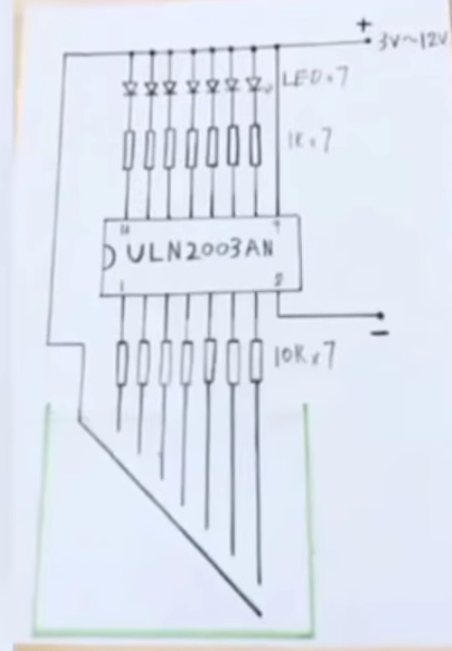 +
3V~12V
LED×7
1K×7
16 9
ULN2003AN
1 8
10K×7
−